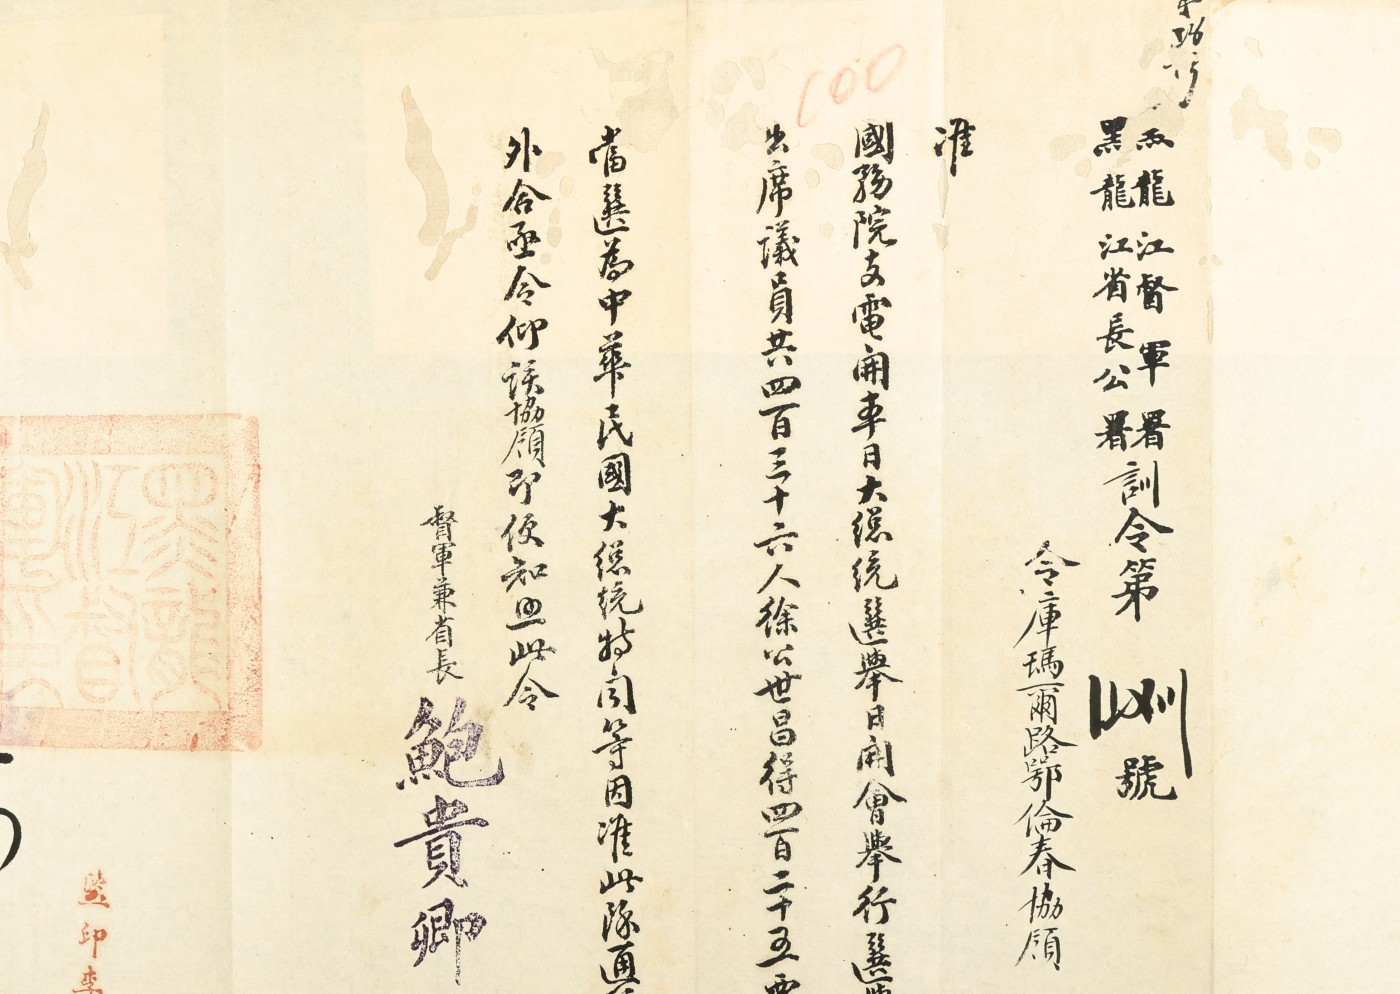 黑龍江督軍署
黑龍江省長公署
訓令第
號
令庫瑪爾路鄂倫春協領
准
國務院支電開本日大總統選舉日開會舉行選舉
出席議員共四百三十六人徐公世昌得四百二十五票
當選為中華民國大總統特聞等因准此除通
外合亟令仰該協領即便知照此令
督軍兼省長
鮑貴卿
黑龍
江督
監印李
100